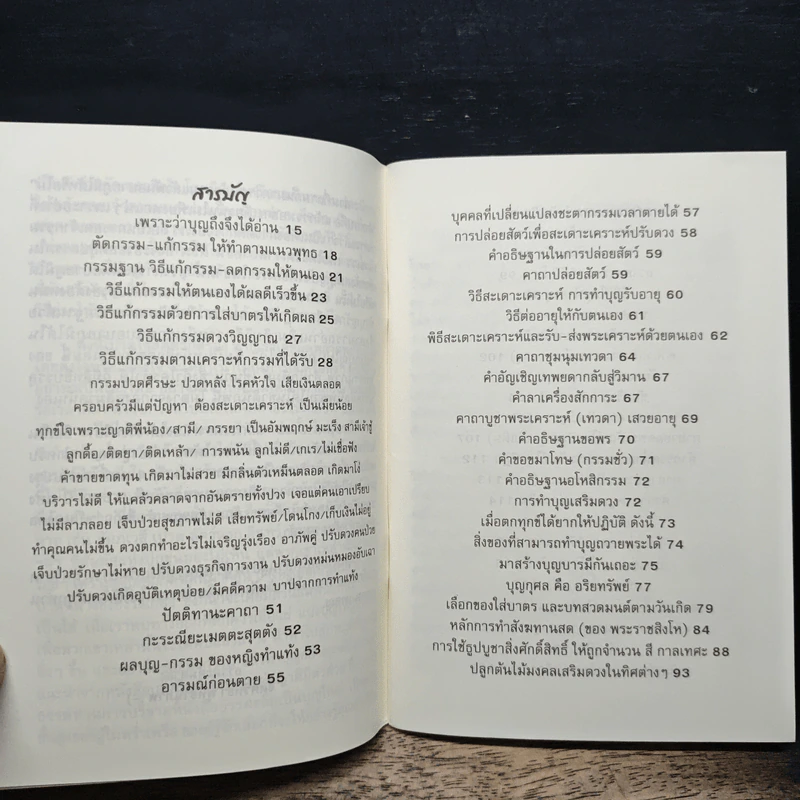 สารบัญ
เพราะว่าบุญถึงจึงได้อ่าน 15
ตัดกรรม-แก้กรรม ให้ทำตามแนวพุทธ 18
กรรมฐาน วิธีแก้กรรม-ลดกรรมให้ตนเอง 21
วิธีแก้กรรมให้ตนเองได้ผลดีเร็วขึ้น 23
วิธีแก้กรรมด้วยการใส่บาตรให้เกิดผล 25
วิธีแก้กรรมดวงวิญญาณ 27
วิธีแก้กรรมตามเคราะห์กรรมที่ได้รับ 28
กรรมปวดศีรษะ ปวดหลัง โรคหัวใจ เสียเงินตลอด
ครอบครัวมีแต่ปัญหา ต้องสะเดาะเคราะห์ เป็นเมียน้อย
ทุกข์ใจเพราะญาติพี่น้อง/สามี/ ภรรยา เป็นอัมพฤกษ์ มะเร็ง สามีเจ้าชู้
ลูกดื้อ/ติดยา/ติดเหล้า/ การพนัน ลูกไม่ดี/เกเร/ไม่เชื่อฟัง
ค้าขายขาดทุน เกิดมาไม่สวย มีกลิ่นตัวเหม็นตลอด เกิดมาโง่
บริวารไม่ดี ให้แคล้วคลาดจากอันตรายทั้งปวง เจอแต่คนเอาเปรียบ
ไม่มีลาภลอย เจ็บป่วยสุขภาพไม่ดี เสียทรัพย์/โดนโกง/เก็บเงินไม่อยู่
ทำคุณคนไม่ขึ้น ดวงตกทำอะไรไม่เจริญรุ่งเรือง อาภัพคู่ ปรับดวงคนป่วย
เจ็บป่วยรักษาไม่หาย ปรับดวงธุรกิจการงาน ปรับดวงหม่นหมองอับเฉา
ปรับดวงเกิดอุบัติเหตุบ่อย/มีคดีความ บาปจากการทำแท้ง
ปัตติทานะคาถา 51
กะระณียะเมตตะสุตตัง 52
ผลบุญ-กรรม ของหญิงทำแท้ง 53
อารมณ์ก่อนตาย 55
บุคคลที่เปลี่ยนแปลงชะตากรรมเวลาตายได้ 57
การปล่อยสัตว์เพื่อสะเดาะเคราะห์ปรับดวง 58
คำอธิษฐานในการปล่อยสัตว์ 59
คาถาปล่อยสัตว์ 59
วิธีสะเดาะเคราะห์ การทำบุญรับอายุ 60
วิธีต่ออายุให้กับตนเอง 61
พิธีสะเดาะเคราะห์และรับ-ส่งพระเคราะห์ด้วยตนเอง 62
คาถาชุมนุมเทวดา 64
คำอัญเชิญเทพยดากลับสู่วิมาน 67
คำลาเครื่องสักการะ 67
คาถาบูชาพระเคราะห์ (เทวดา) เสวยอายุ 69
คำอธิษฐานขอพร 70
คำขอขมาโทษ (กรรมชั่ว) 71
คำอธิษฐานอโหสิกรรม 72
การทำบุญเสริมดวง 72
เมื่อตกทุกข์ได้ยากให้ปฏิบัติ ดังนี้ 73
สิ่งของที่สามารถทำบุญถวายพระได้ 74
มาสร้างบุญบารมีกันเถอะ 75
บุญกุศล คือ อริยทรัพย์ 77
เลือกของใส่บาตร และบทสวดมนต์ตามวันเกิด 79
หลักการทำสังฆทานสด (ของ พระราชสิงโห) 84
การใช้ธูปบูชาสิ่งศักดิ์สิทธิ์ ให้ถูกจำนวน สี กาลเทศะ 88
ปลูกต้นไม้มงคลเสริมดวงในทิศต่างๆ 93